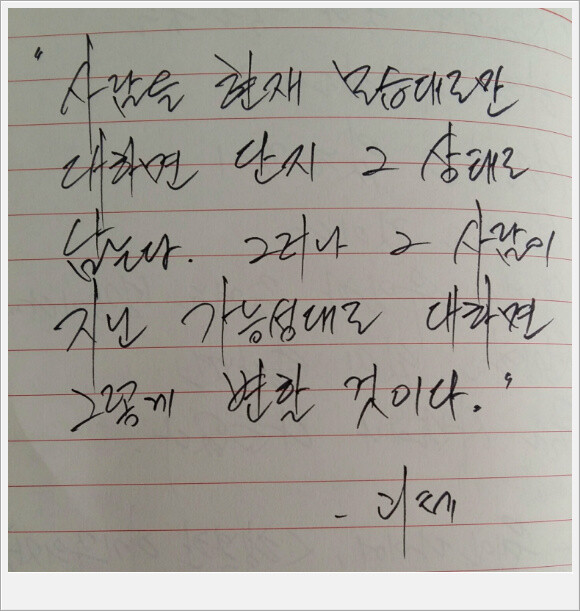 "사람을 현재 모습대로만
대하면 단지 그 상태로
남는다. 그러나 그 사람이
지닌 가능성대로 대하면
그렇게 변할 것이다."
- 괴테